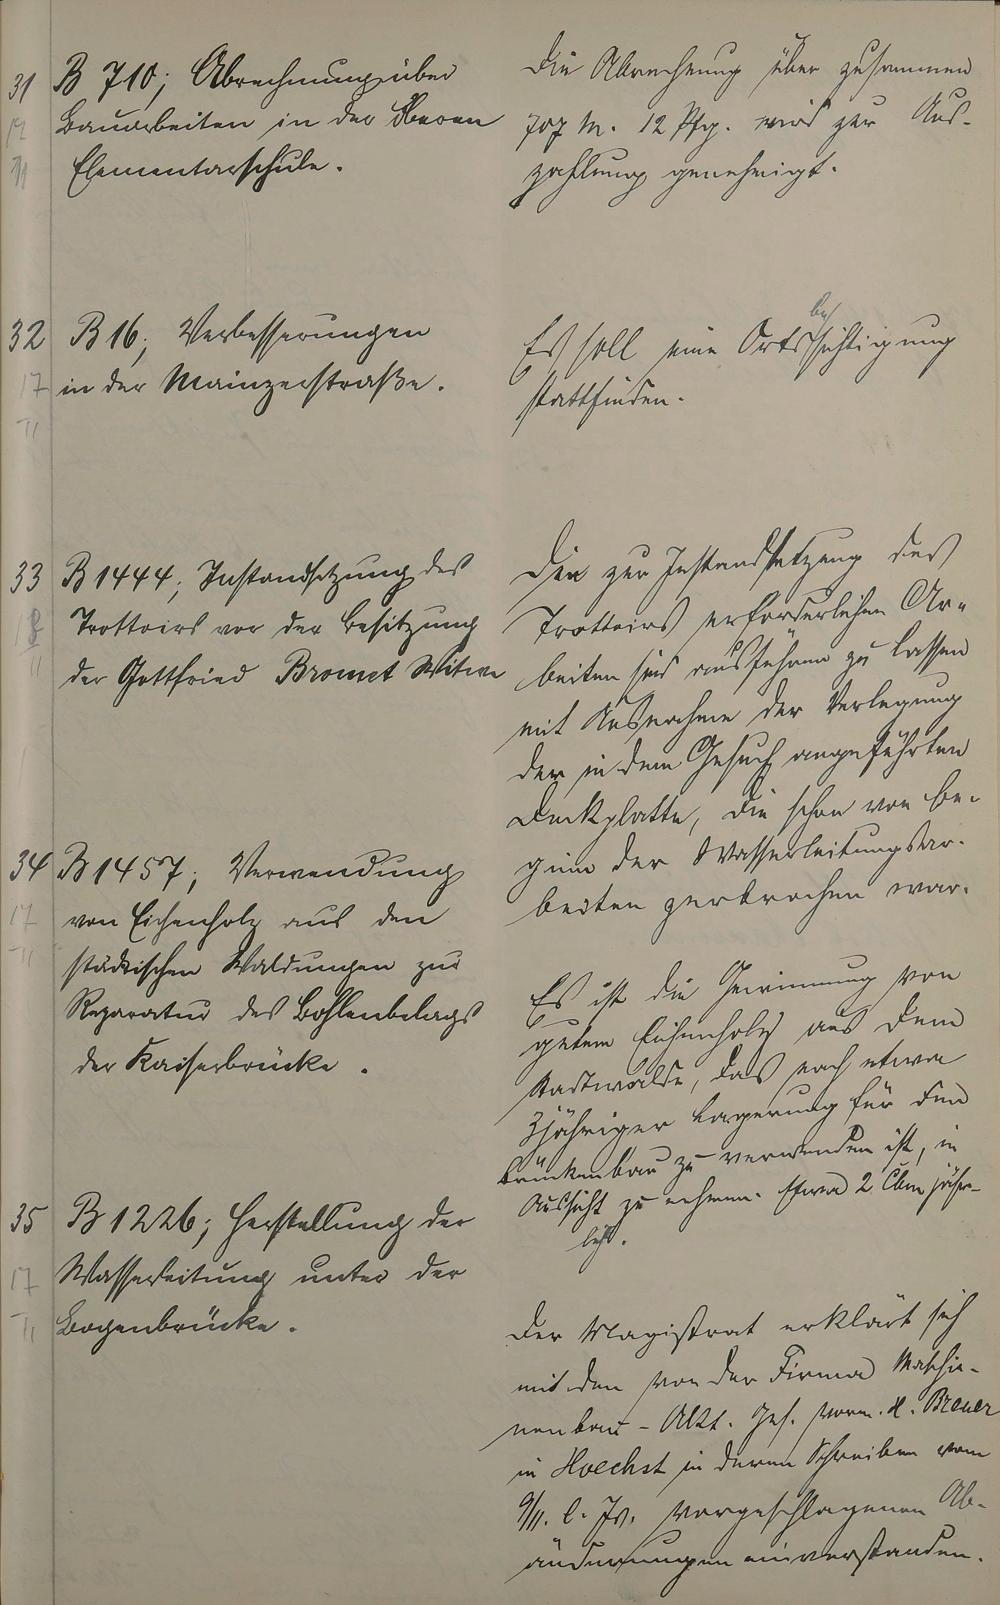 31 B 710; Abrechnung über
Bauarbeiten in der Oberen
Elementarschule.
Die Abrechnung über zusammen
707 M. 12 Pfg. wird zur Aus-
zahlung genehmigt.
32 B 16; Verbesserungen
in der Mainzerstraße.
17
II
Es soll eine Ortsbesichtigung
stattfinden.
33 B 1444; Instandsetzung des
Trottoirs vor der Besitzung
der Gottfried Bromet Witwe
Die zur Instandsetzung des
Trottoirs erforderlichen Ar-
beiten sind ausführen zu lassen
mit Ausnahme der Verlegung
der in dem Gesuch angeführten
Deckplatte, die schon von Be-
ginn der Wasserleitungsar-
beiten zerbrochen war.
34 B 1457; Verwendung
von Eichenholz aus den
städtischen Waldungen zur
Reparatur des Bohlenbelags
der Kaiserbrücke.
17
II
Es ist die Gewinnung von
gutem Eichenholz aus dem
Stadtwalde, das nach etwa
3jähriger Lagerung für den
Brückenbau zu verwenden ist, in
Aussicht zu nehmen. Etwa 2 Cbm jähr-
lich.
35 B 1226; Herstellung der
Wasserleitung unter der
Bogenbrücke.
17
II
Der Magistrat erklärt sich
mit den von der Firma Maschi-
nenbau-Akt. Ges. vorm. H. Breuer
in Hoechst in deren Schreiben vom
9/11. l. Js. vorgeschlagenen Ab-
änderungen einverstanden.